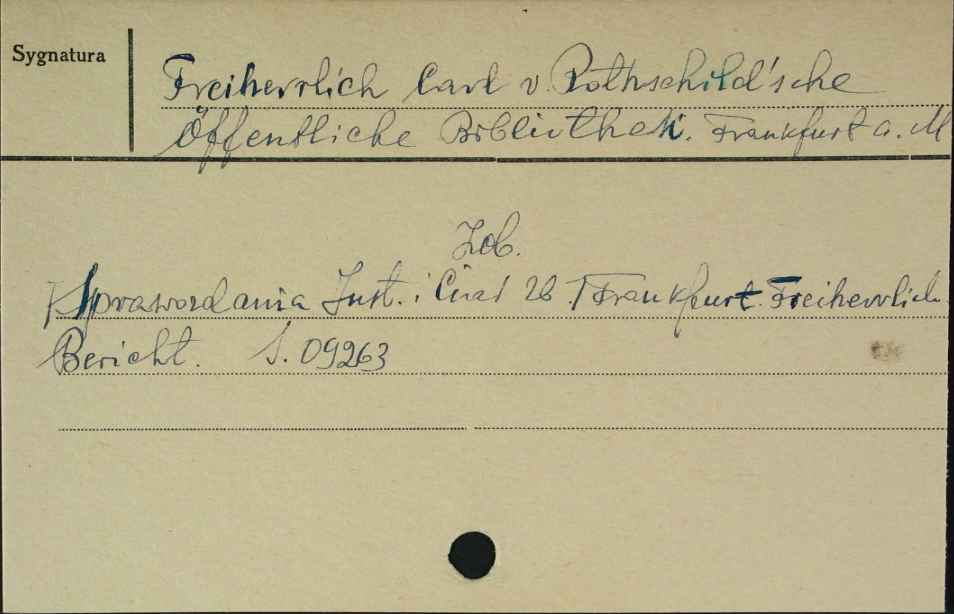 Sygnatura
Freiherrlich Carl v. Rothschild'sche
Öffentliche Bibliothek. Frankfurt a. M
Zob.
[Sprawozdania Inst. i Czas 2b.] Frankfurt. Freiherrlich
Bericht. S. 09263